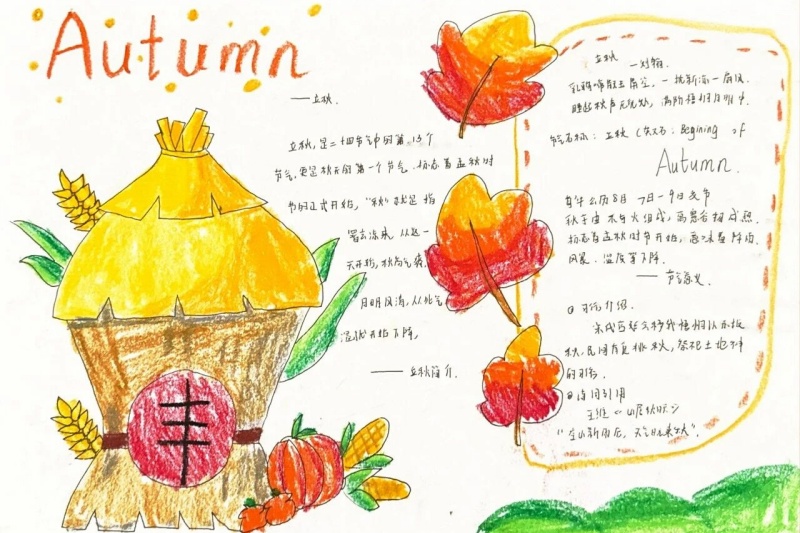 Autumn
——立秋.
立秋,是二十四节气中的第13个
节气,更是秋天的第一个节气,标志着孟秋时
节的正式开始,"秋"就是指
暑去凉来,从这一
天开始,秋高气爽,
月明风清,从此气
温开始下降,
——立秋简介.
立秋 一刘翰.
乳鸦啼散玉屏空,一枕新凉一扇风.
睡起秋声无觅处,满阶梧叶月明中.
节气名称:立秋 (英文名: Begining of
Autumn.
每年公历8月 7日-9日交节
秋字由 禾与火组成,
标志着孟秋时节开始,意味着降雨,
风暴、湿度等下降.
—— 节气
① 习俗介绍.
秋,民间有 祭祀土地神
的习俗.
②诗词引用
王维 《山居秋暝》
"空山新雨后,天气晚来秋".